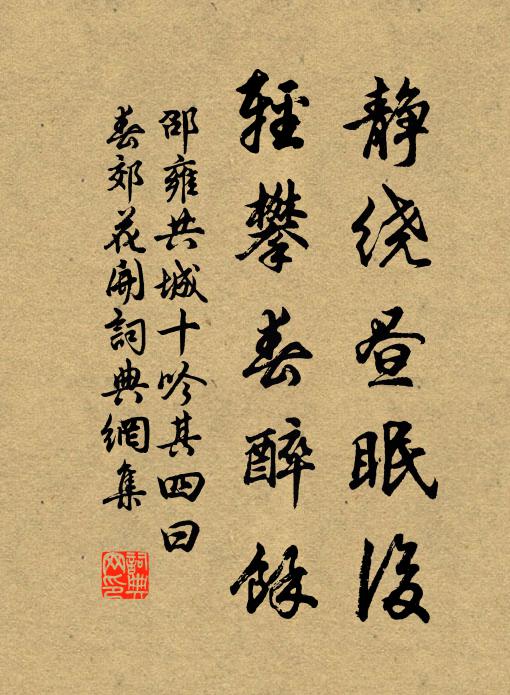 静绕昼眠後
輕攀春醉餘
邵雍共城十吟其四曰
春郊花開詞典網集
詞典網印